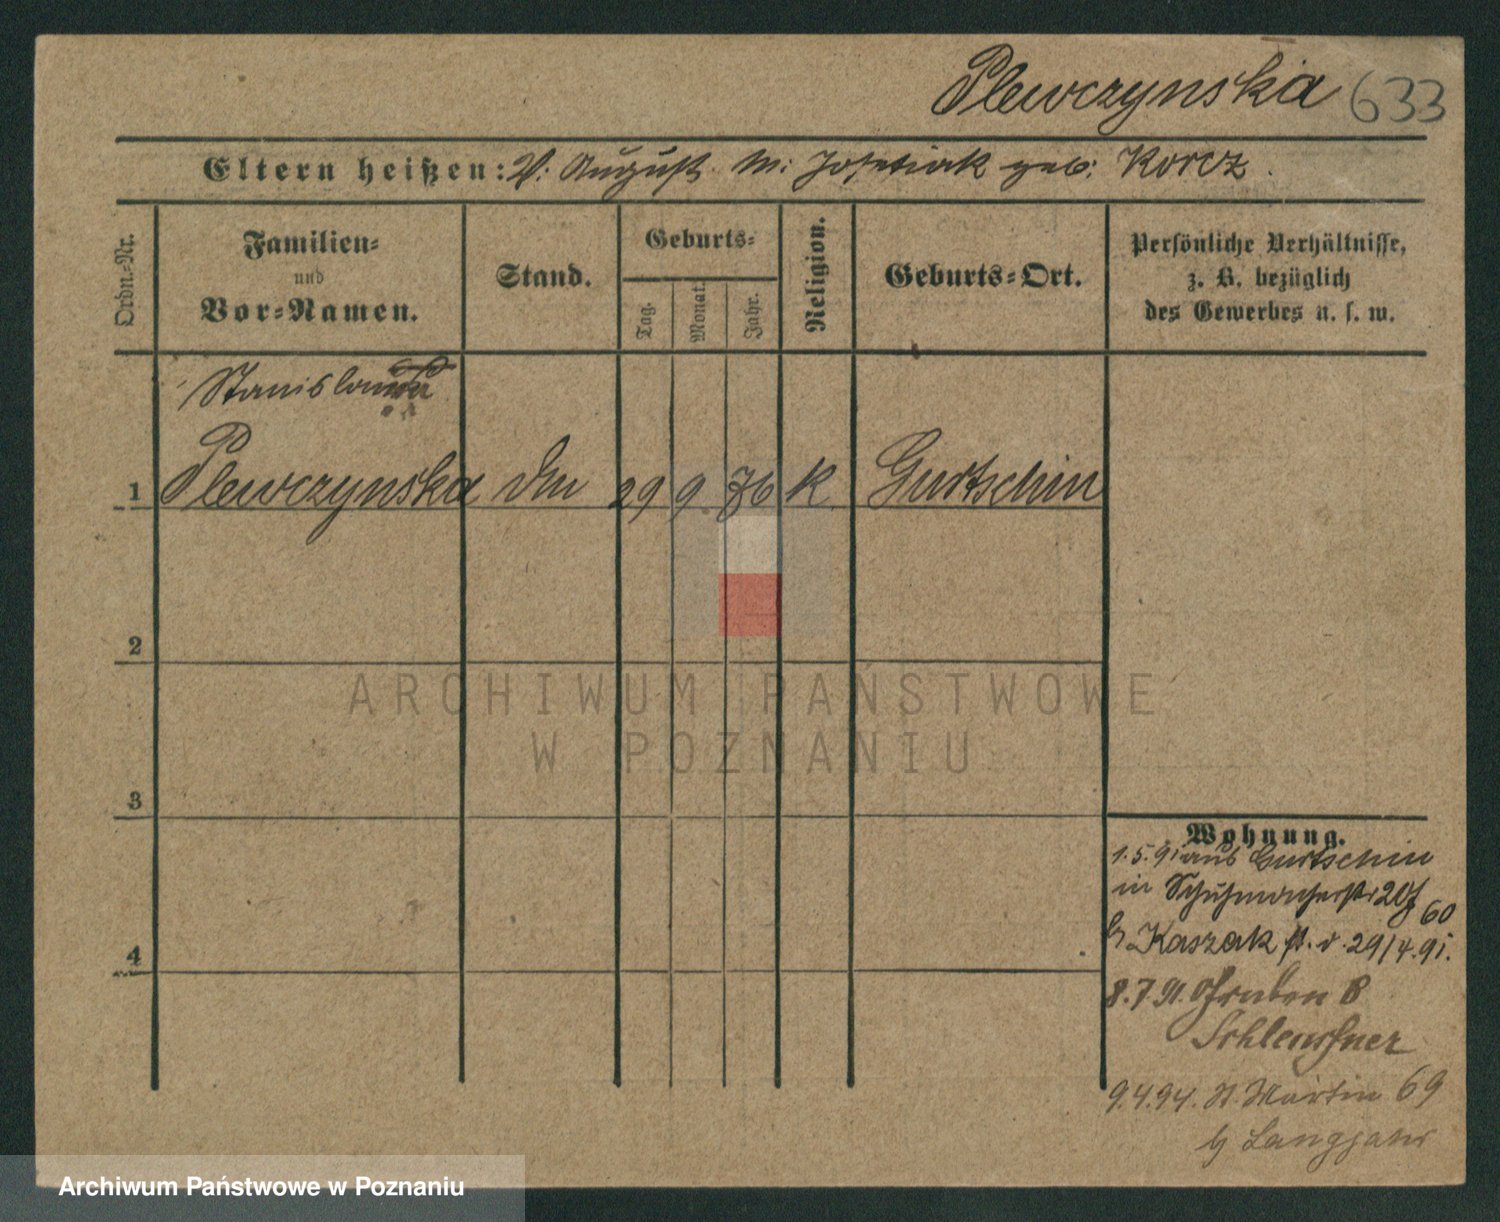 Plewczynska 633
Eltern heißen: V. August M: Josefiak geb: Korcz.
Ordn.-Nr.
Familien-
und
Vor-Namen.
Stand.
Geburts-
Tag.
Monat.
Jahr.
Religion.
Geburts-Ort.
Persönliche Verhältnisse,
z. B. bezüglich
des Gewerbes u. s. w.
Stanislawa
1 Plewczynska 29 9. 76 K. Gurtschin
2
3
4
ARCHIWUM PAŃSTWOWE
W POZNANIU
Wohnung.
1.5.91 aus Gurtschin
in Schuhmacherstr 20
60
Kaszak 29/4.91.
8.7.91. Gruben 8
9.4.94. St Martin 69
b Langjahr
Archiwum Państwowe w Poznaniu